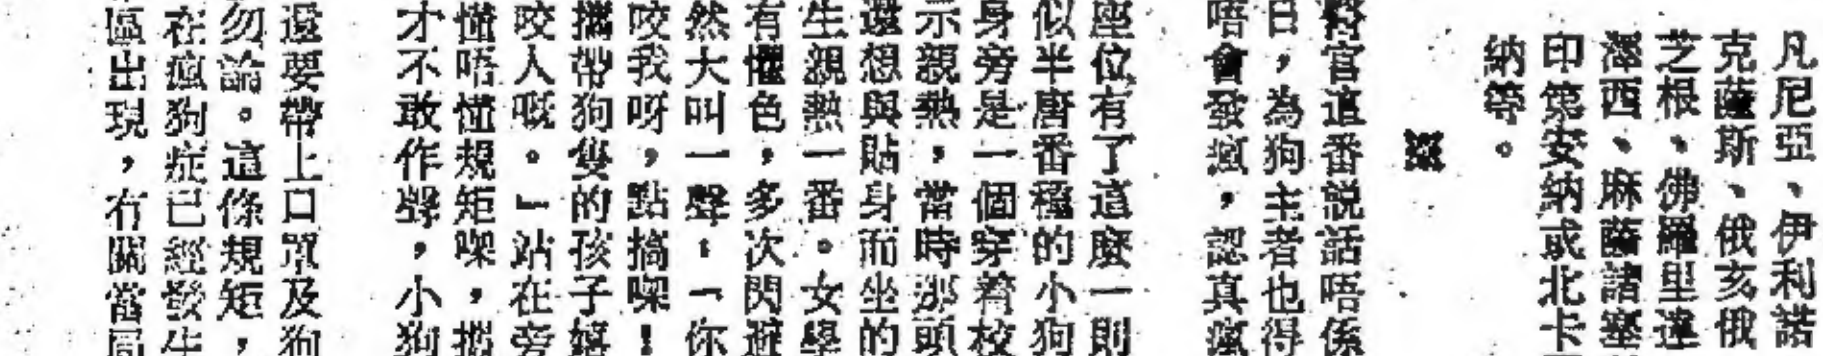 凡尼亞、伊利諾
克薩斯、俄亥俄
芝根、佛羅里達
澤西、麻薩諸塞
印第安納或北卡
納等。
醫官這番説話唔係
日，為狗主者也得
唔會發瘋，認真瘋
座位有了這麼一則
似半唐番種的小狗
身旁是一個穿着校
示親熱，當時那頭
還想與貼身而坐的
生親熱一番。女學
有懼色，多次閃避
然大叫一聲：「你
咬我呀，點搞㗎！
攜帶狗隻的孩子嬉
咬人嘅。」站在旁
懂唔懂規矩㗎，攜
才不敢作聲，小狗
還要帶上口罩及狗
勿論。這條規矩，
在瘋狗症已經發生
區出現，有關當局